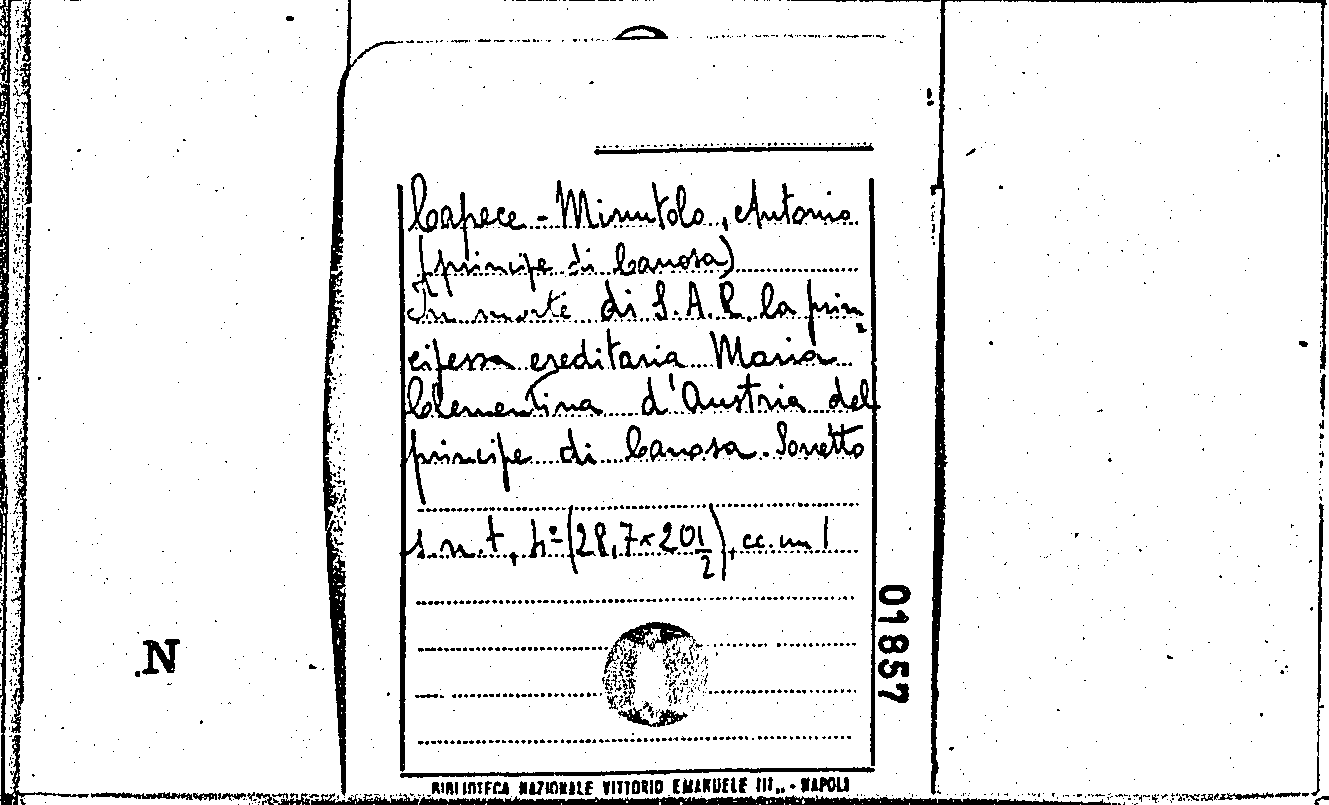 Capece - Minutolo, Antonio
(principe di Canosa)
In morte di S.A.R. la prin
cipessa ereditaria Maria
Clementina d'Austria del
principe di Canosa. Sonetto
s.n.t, h° (28,7 × 20 1/2), cc.nn 1
N
01857
BIBLIOTECA NAZIONALE VITTORIO EMANUELE III„ - NAPOLI